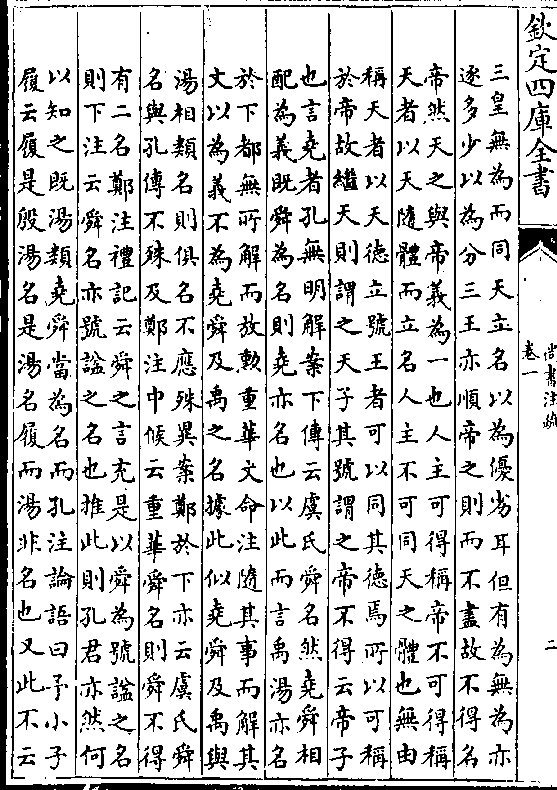 欽定四庫全書
尚書注疏
卷一
二
三皇無為而同天立名以為優劣耳但有為無為亦
逐多少以為分三王亦順帝之則而不盡故不得名
帝然天之與帝義為一也人主可得稱帝不可得稱
天者以天隨體而立名人主不可同天之體也無由
稱天者以天德立號王者可以同其德焉所以可稱
於帝故繼天則謂之天子其號謂之帝不得云帝子
也言堯者孔無明解案下傳云虞氏舜名然堯舜相
配為義既舜為名則堯亦名也以此而言禹湯亦名
於下都無所解而放勲重華文命注隨其事而解其
文以為義不為堯舜及禹之名據此似堯舜及禹與
湯相類名則俱名不應殊異案鄭於下亦云虞氏舜
名與孔傳不殊及鄭注中候云重華舜名則舜不得
有二名鄭注禮記云舜之言充是以舜為號諡之名
則下注云舜名亦號諡之名也推此則孔君亦然何
以知之既湯類堯舜當為名而孔注論語曰予小子
履云履是殷湯名是湯名履而湯非名也又此不云